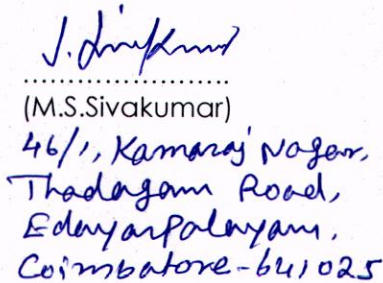 (M.S.Sivakumar)
46/1, Kamaraj Nagar,
Thadagam Road,
Edayarpalayam,
Coimbatore-641025